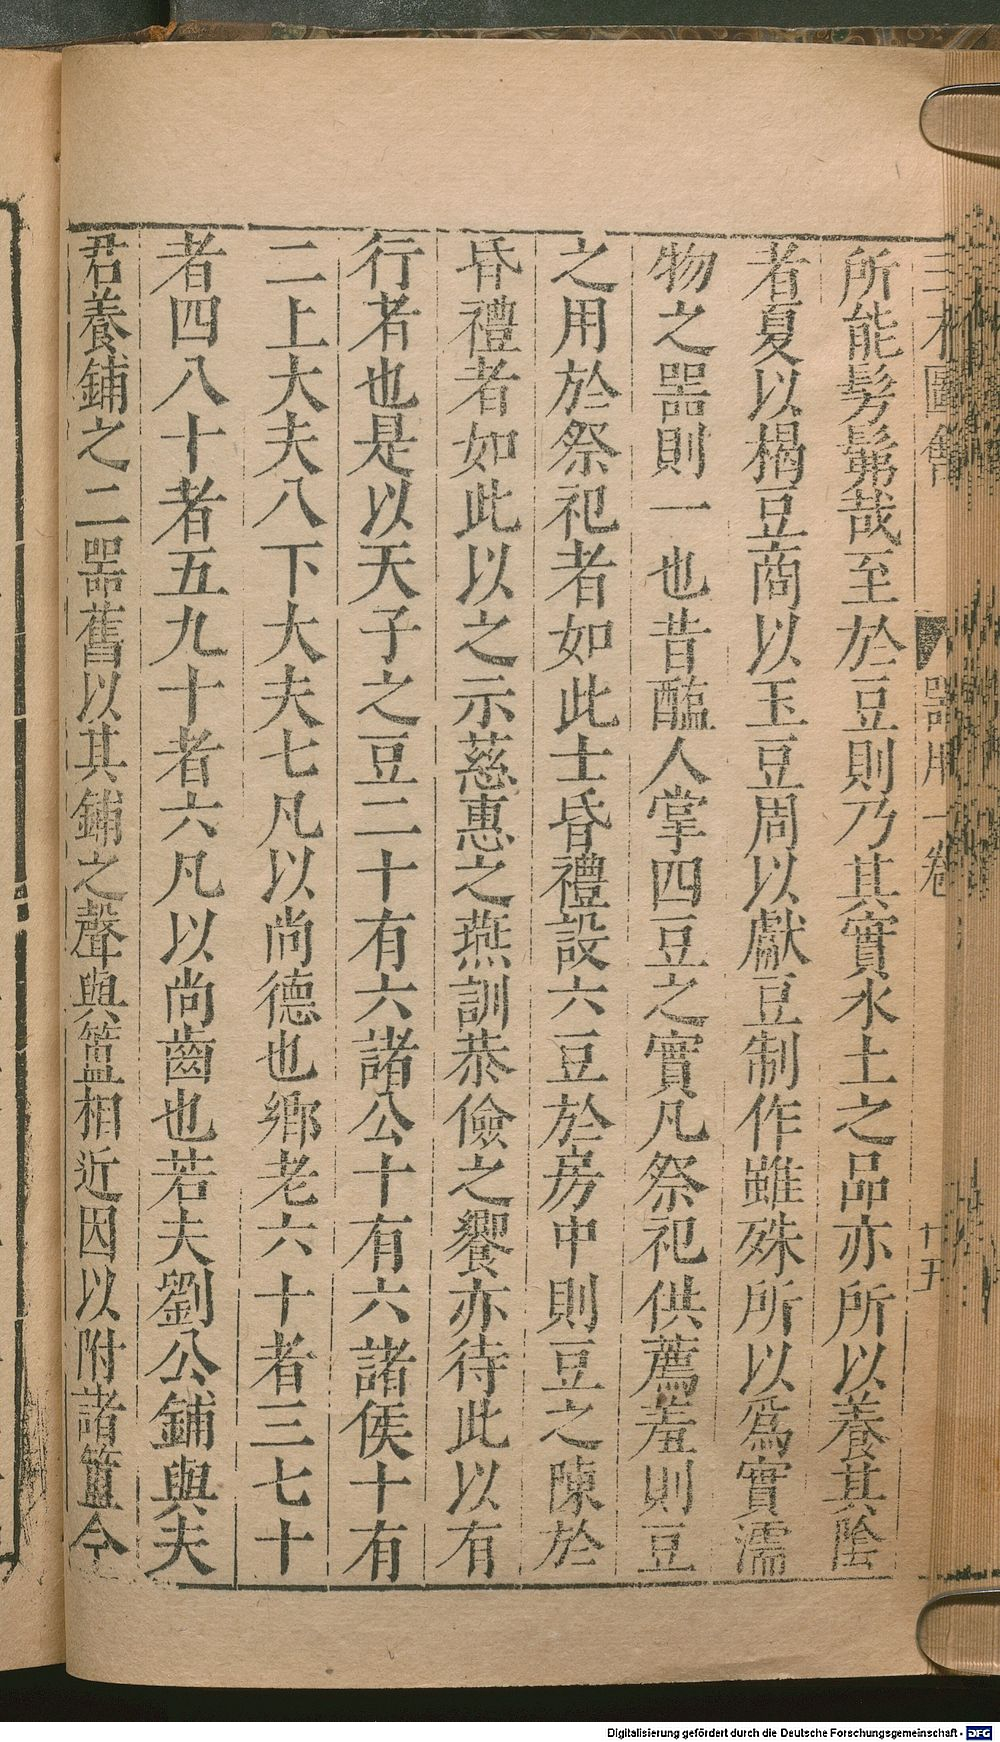 三才圖會 器用一卷 十五
所能髣髴哉至於豆則乃其實水土之品亦所以養其陰
者夏以楬豆商以玉豆周以獻豆制作雖殊所以爲實濡
物之噐則一也昔醢人掌四豆之實凡祭祀供薦羞則豆
之用於祭祀者如此士昏禮設六豆於房中則豆之陳於
昏禮者如此以之示慈惠之燕訓恭儉之饗亦待此以有
行者也是以天子之豆二十有六諸公十有六諸侯十有
二上大夫八下大夫七凡以尚德也鄉老六十者三七十
者四八十者五九十者六凡以尚齒也若夫劉公鋪與夫
君養鋪之二噐舊以其鋪之聲與簠相近因以附諸簠今
Digitalisierung gefördert durch die Deutsche Forschungsgemeinschaft - DFG